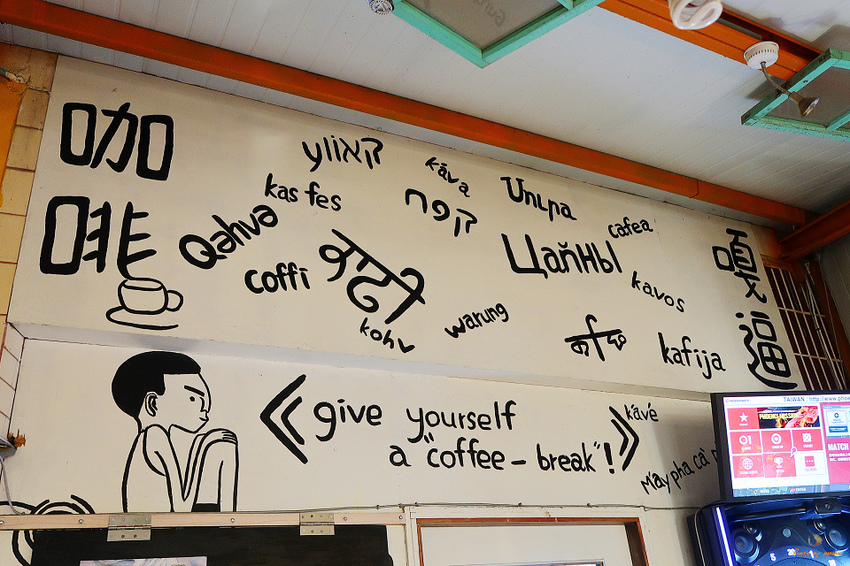 咖啡
káva
kas fes
Qahva
קפה
cafea
Цайны
coffi
kavos
warung
kohv
kafija
嘎逼
《give yourself
a "coffee-break"!》
kávé
Máy pha cà
TAIWAN
MATCH